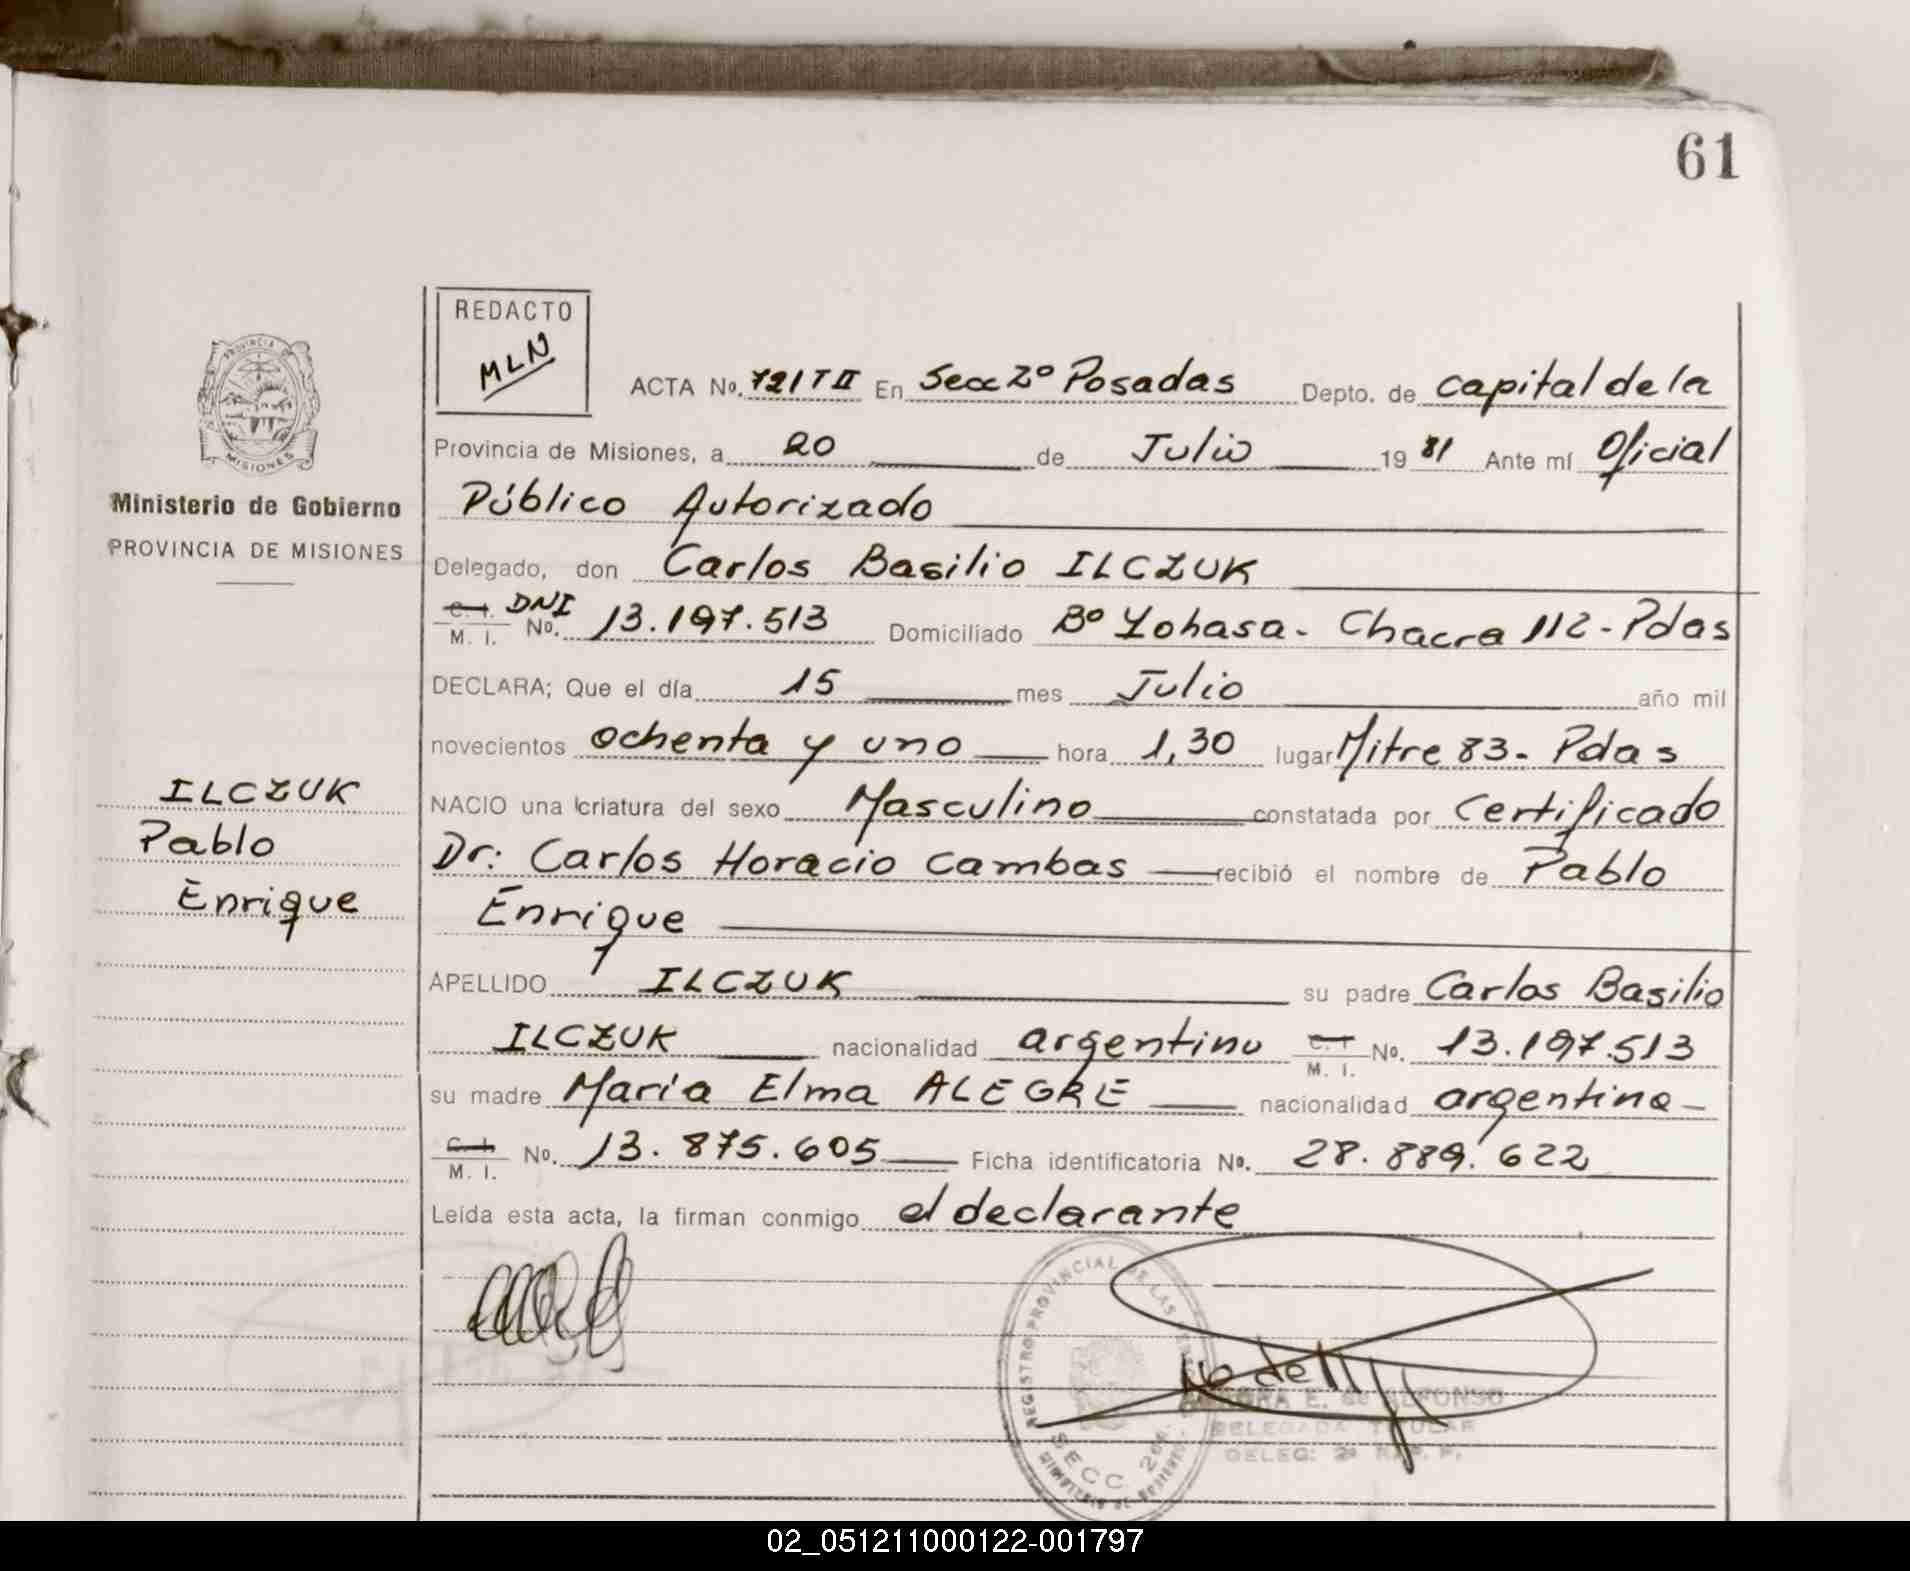 61
REDACTO
MLN
PROVINCIA DE
MISIONES
Ministerio de Gobierno
PROVINCIA DE MISIONES
ILCZUK
Pablo
Enrique
ACTA No. 721 T II En Secc 2º Posadas Depto. de capital de la
Provincia de Misiones, a 20 de Julio 19 81 Ante mí Oficial
Público Autorizado
Delegado, don Carlos Basilio ILCZUK
C. I. DNI
M. I. No. 13.197.513 Domiciliado Bº Yohasa - Chacra 112 - Pdas
DECLARA; Que el día 15 mes Julio año mil
novecientos ochenta y uno hora 1,30 lugar Mitre 83 - Pdas
NACIO una criatura del sexo Masculino constatada por Certificado
Dr: Carlos Horacio Cambas recibió el nombre de Pablo
Enrique
APELLIDO ILCZUK su padre Carlos Basilio
ILCZUK nacionalidad argentino C. I. M. I. No. 13.197.513
su madre María Elma ALEGRE nacionalidad argentina -
C. I. M. I. No. 13.875.605 Ficha identificatoria No. 28.889.622
Leída esta acta, la firman conmigo el declarante
REGISTRO PROVINCIAL DE LAS
SECC 2da.
E. de ALFONSO
DELEGADA TITULAR
DELEG: 2º
02_051211000122-001797